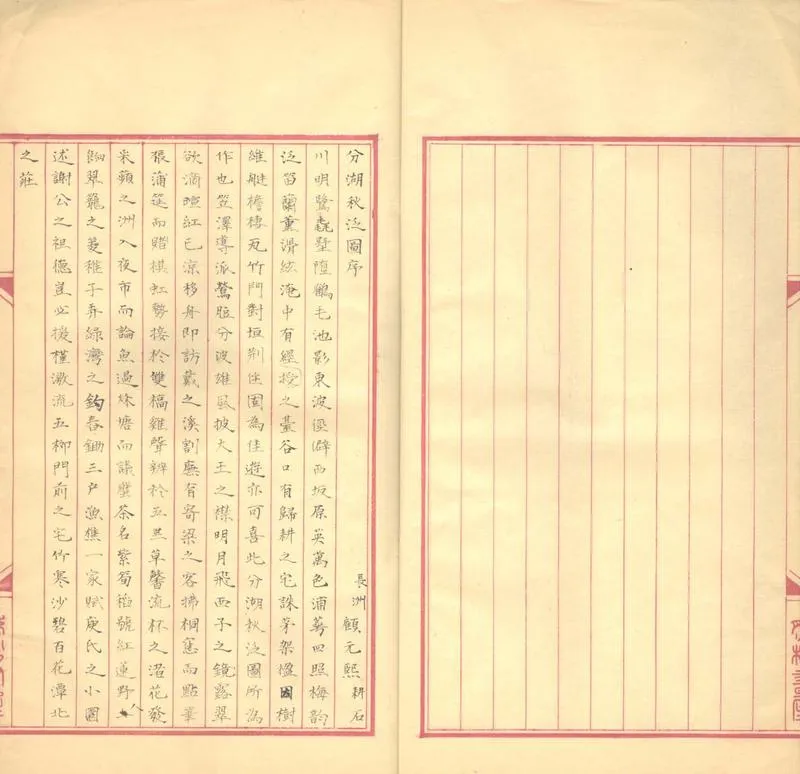 分湖秋泛圖序
長洲 顧元熙 耕石
川明鷺毳墅墮鶴毛池影東波徑辟西坂原英萬色浦蕚四照梅韵
泛笛蘭薰滑紘淹中有經授之臺谷口有歸耕之宅誅茅架楹因樹
維艇檐棲瓦竹門對垣荆住固為佳遊亦可喜此分湖秋泛圖所為
作也笠澤導派鶯脰分波雄風披大王之襟明月飛西子之鏡露翠
欲滴晼紅已涼移舟即訪戴之溪割廡有寄梁之客拂桐窻而點筆
張蒲筵而賭棋虹勢接於雙橋雞聲辨於五畝草馨流杯之渚花發
采蘋之洲入夜市而論魚過妹塘而議蟹茶名紫筍稻號紅蓮野人
餉翠籠之菱稚子弄綠灣之鈎春鋤三户漁樵一家賦庾氏之小園
述謝公之祖德豈必援槿激流五柳門前之宅竹寒沙碧百花潭北
之莊